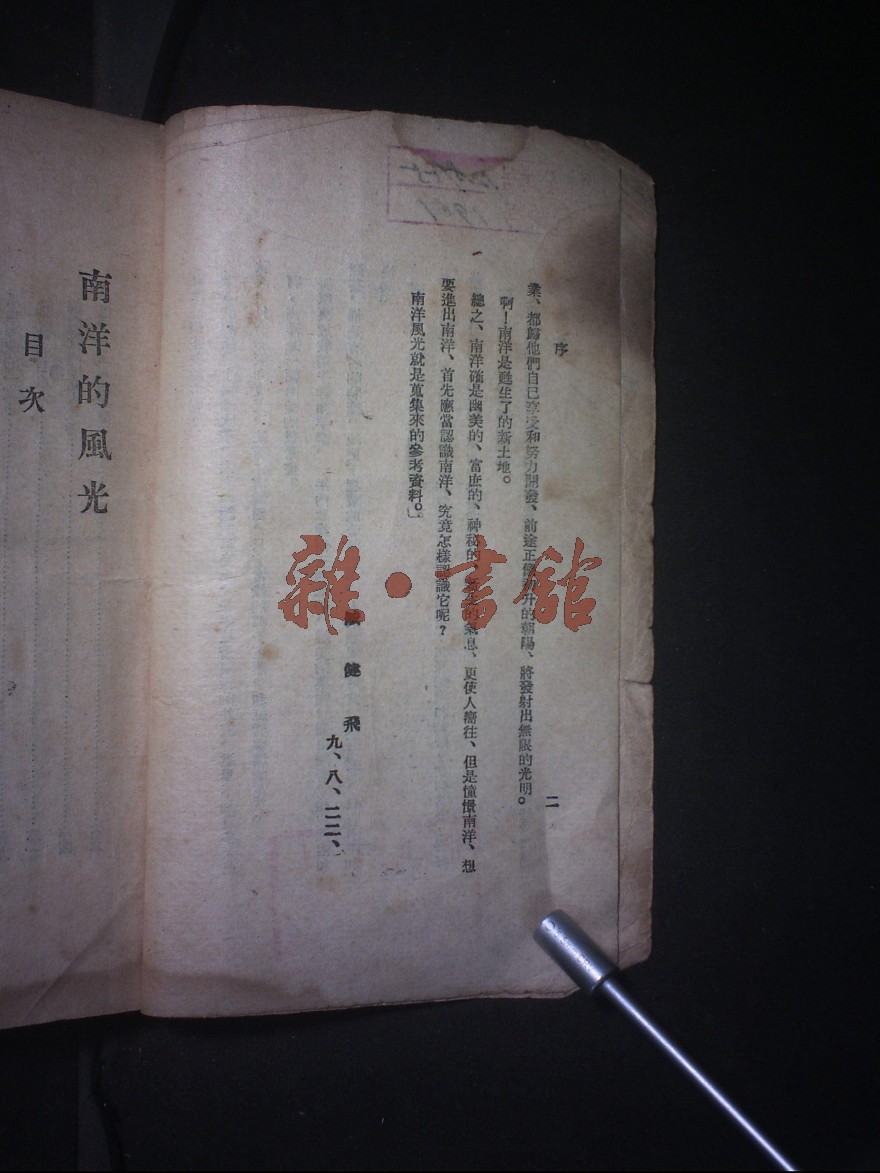 序
二
業、都歸他們自己享受和努力開發、前途正像初升的朝陽、將發射出無限的光明。
啊！南洋是甦生了的新土地。
總之、南洋確是幽美的、富庶的、神秘的、的氣息、更使人嚮往、但是憧憬南洋、想
要進出南洋、首先應當認識南洋、究竟怎樣認識它呢？
南洋風光就是蒐集來的參考資料。」
健飛
九、八、二二、
南洋的風光
目次
雜·書館